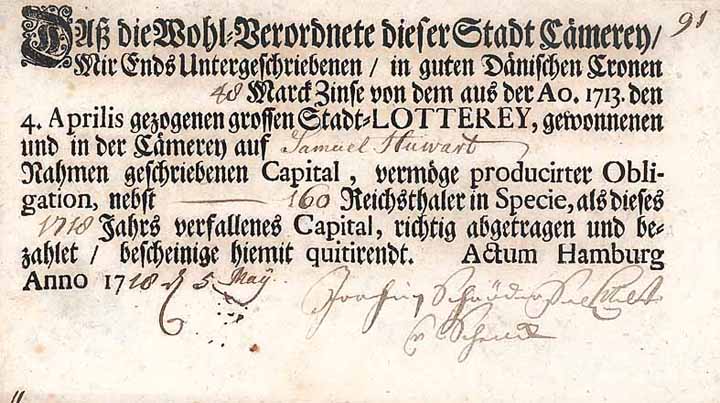 91
Daß die Wohl-Verordnete dieser Stadt Cämerey/
Mir Ends Untergeschriebenen / in guten Dänischen Cronen
48 Marck Zinse von dem aus der Ao. 1713. den
4. Aprilis gezogenen grossen Stadt-LOTTEREY, gewonnenen
und in der Cämerey auf Samuel Stuwart
Nahmen geschriebenen Capital, vermöge producirter Obli-
gation, nebst 160 Reichsthaler in Specie, als dieses
1718 Jahrs verfallenes Capital, richtig abgetragen und be-
zahlet / bescheinige hiemit quitirendt. Actum Hamburg
Anno 1718 d 5 May
Joachim Schröder